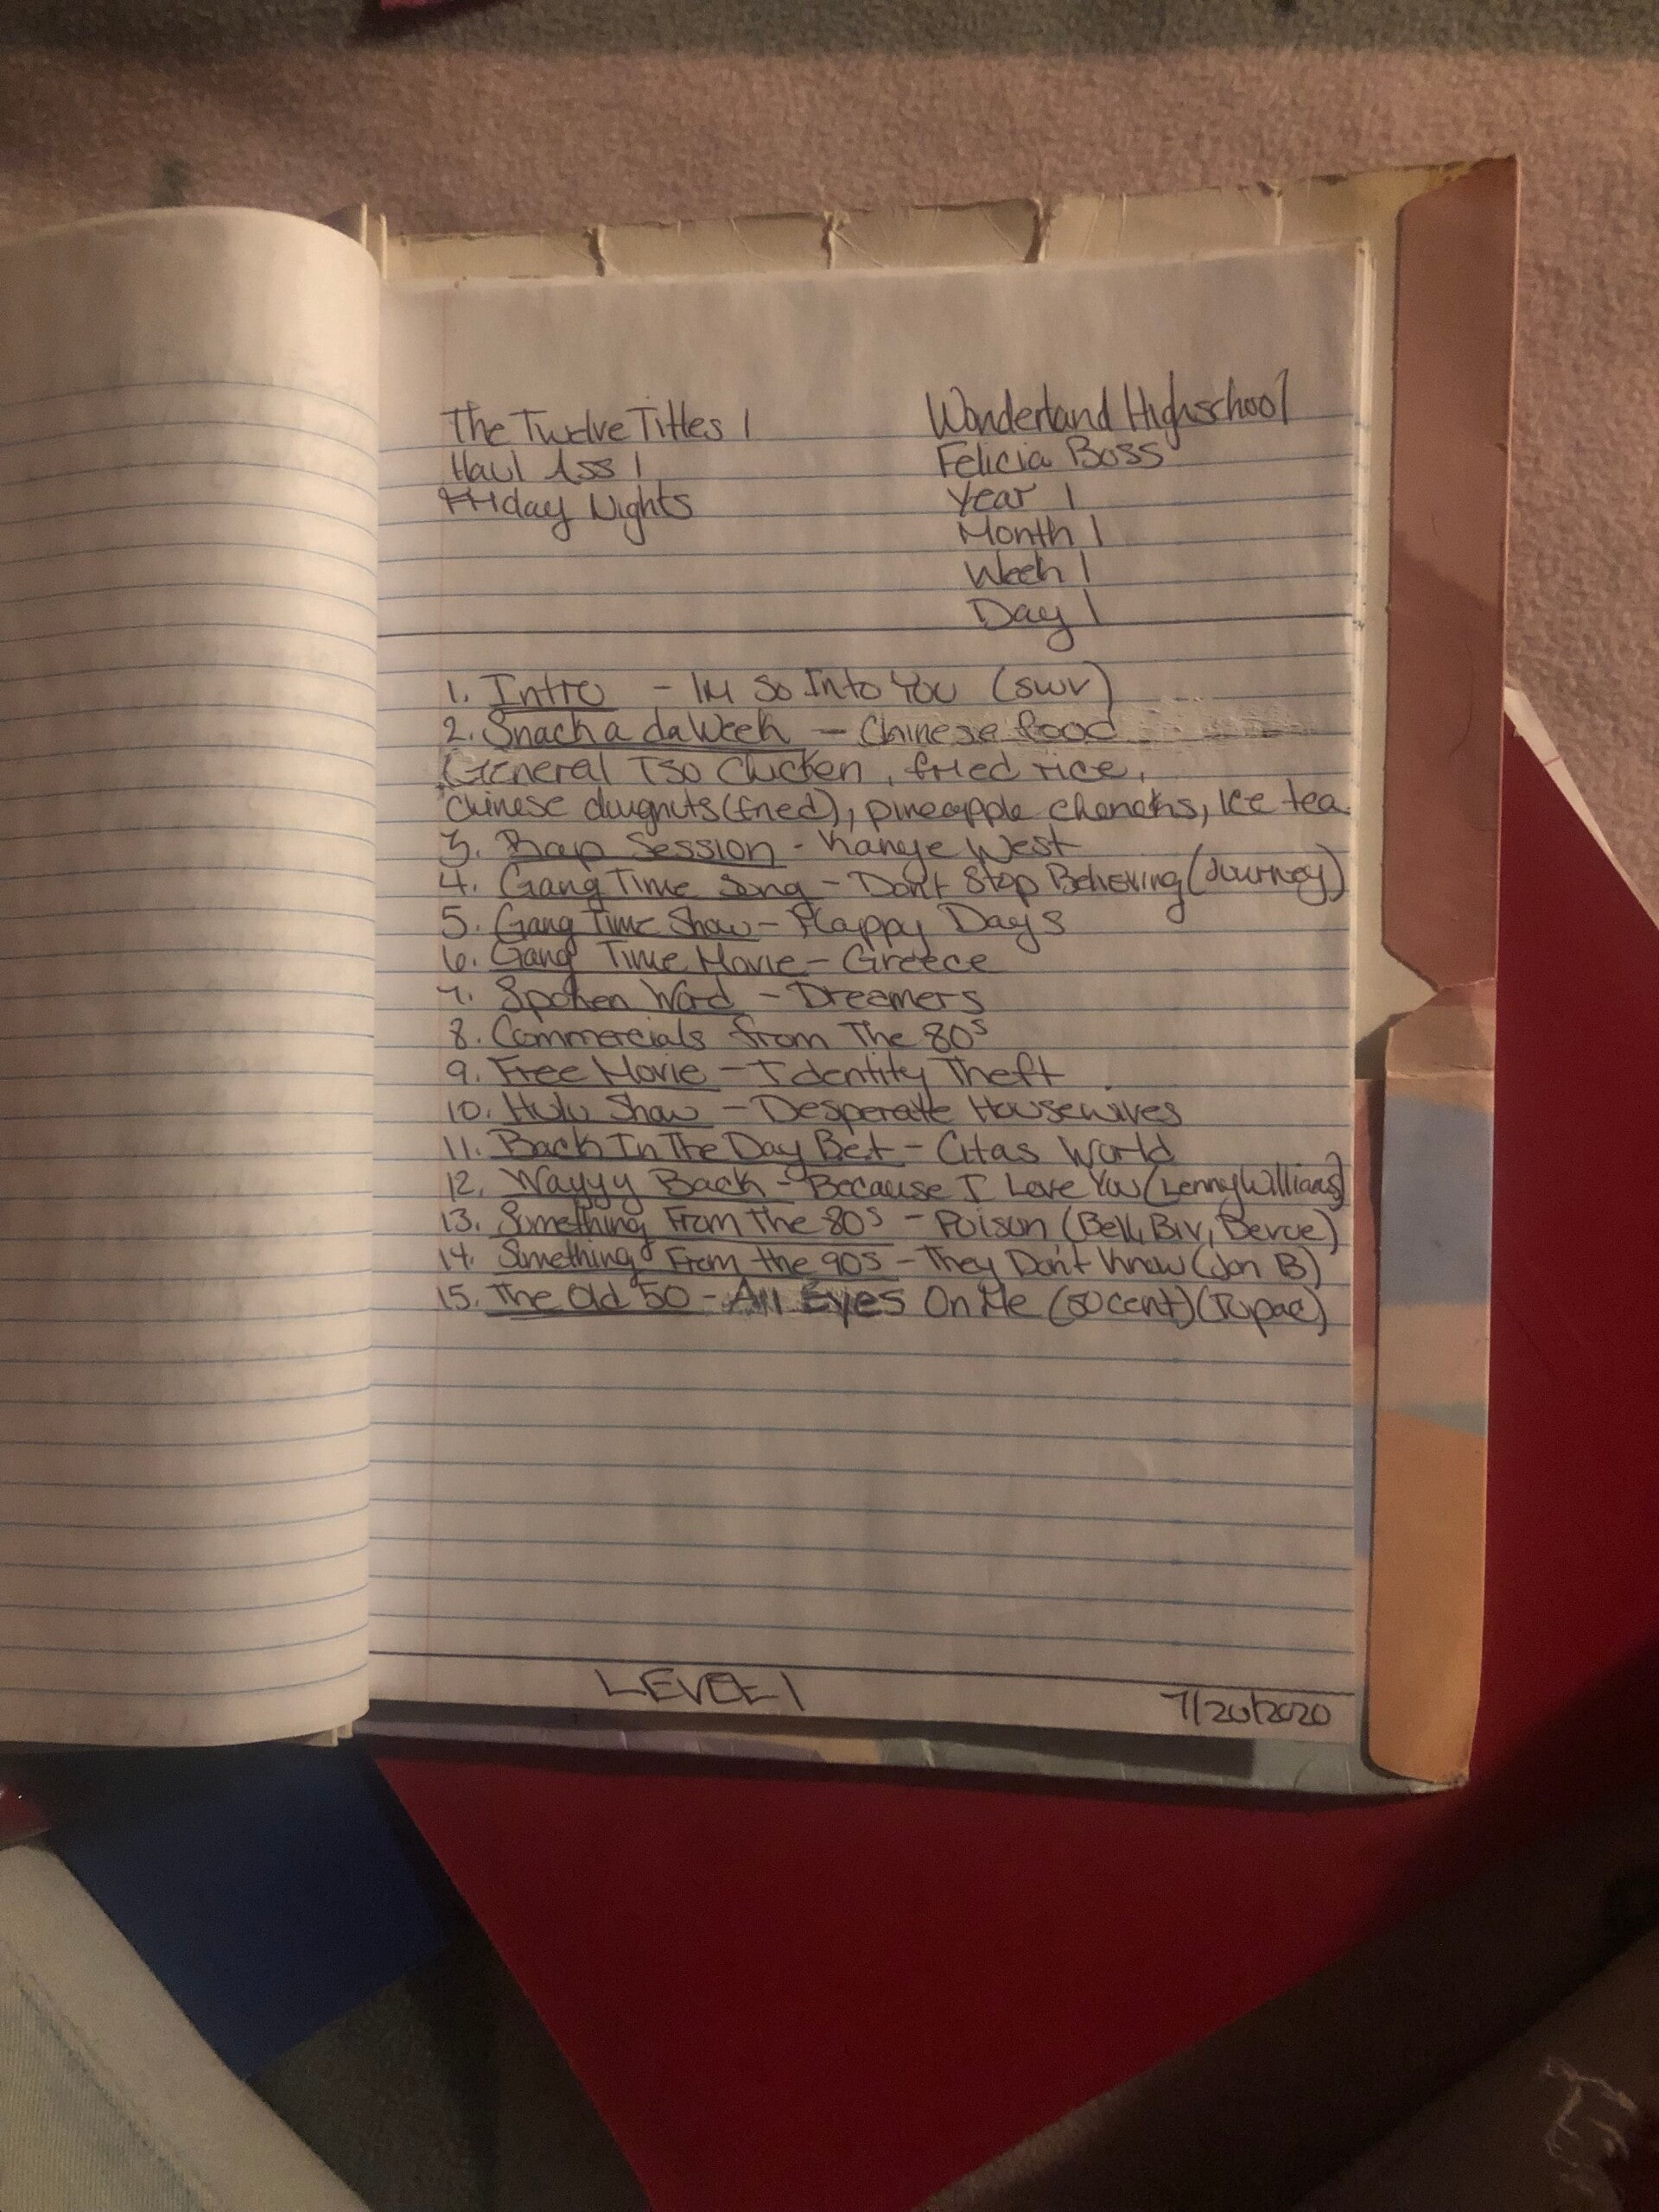 The Twelve Titles 1
Haul Ass 1
Friday Nights
Wonderland Highschool
Felicia Boss
Year 1
Month 1
Week 1
Day 1
1. Intro - Im So Into You (SWV)
2. Snack a da Week - Chinese food
General Tso Chicken, fried rice,
Chinese dougnuts (fried), pineapple chencks, Ice tea
3. Rap Session - Kanye West
4. Gang Time Song - Don't Stop Believing (Journey)
5. Gang Time Show - Happy Days
6. Gang Time Movie - Greece
7. Spoken Word - Dreamers
8. Commercials from The 80s
9. Free Movie - Identity Theft
10. Hulu Show - Desperate Housewives
11. Back In The Day Bet - Citas World
12. Wayyy Back - Because I Love You (Lenny Williams)
13. Something From The 80s - Poison (Bell, Biv, Bevoe)
14. Something From the 90s - They Don't Know (Jon B)
15. The Old 50 - All Eyes On Me (50 cent) (Tupac)
LEVEL 1
7/20/2020